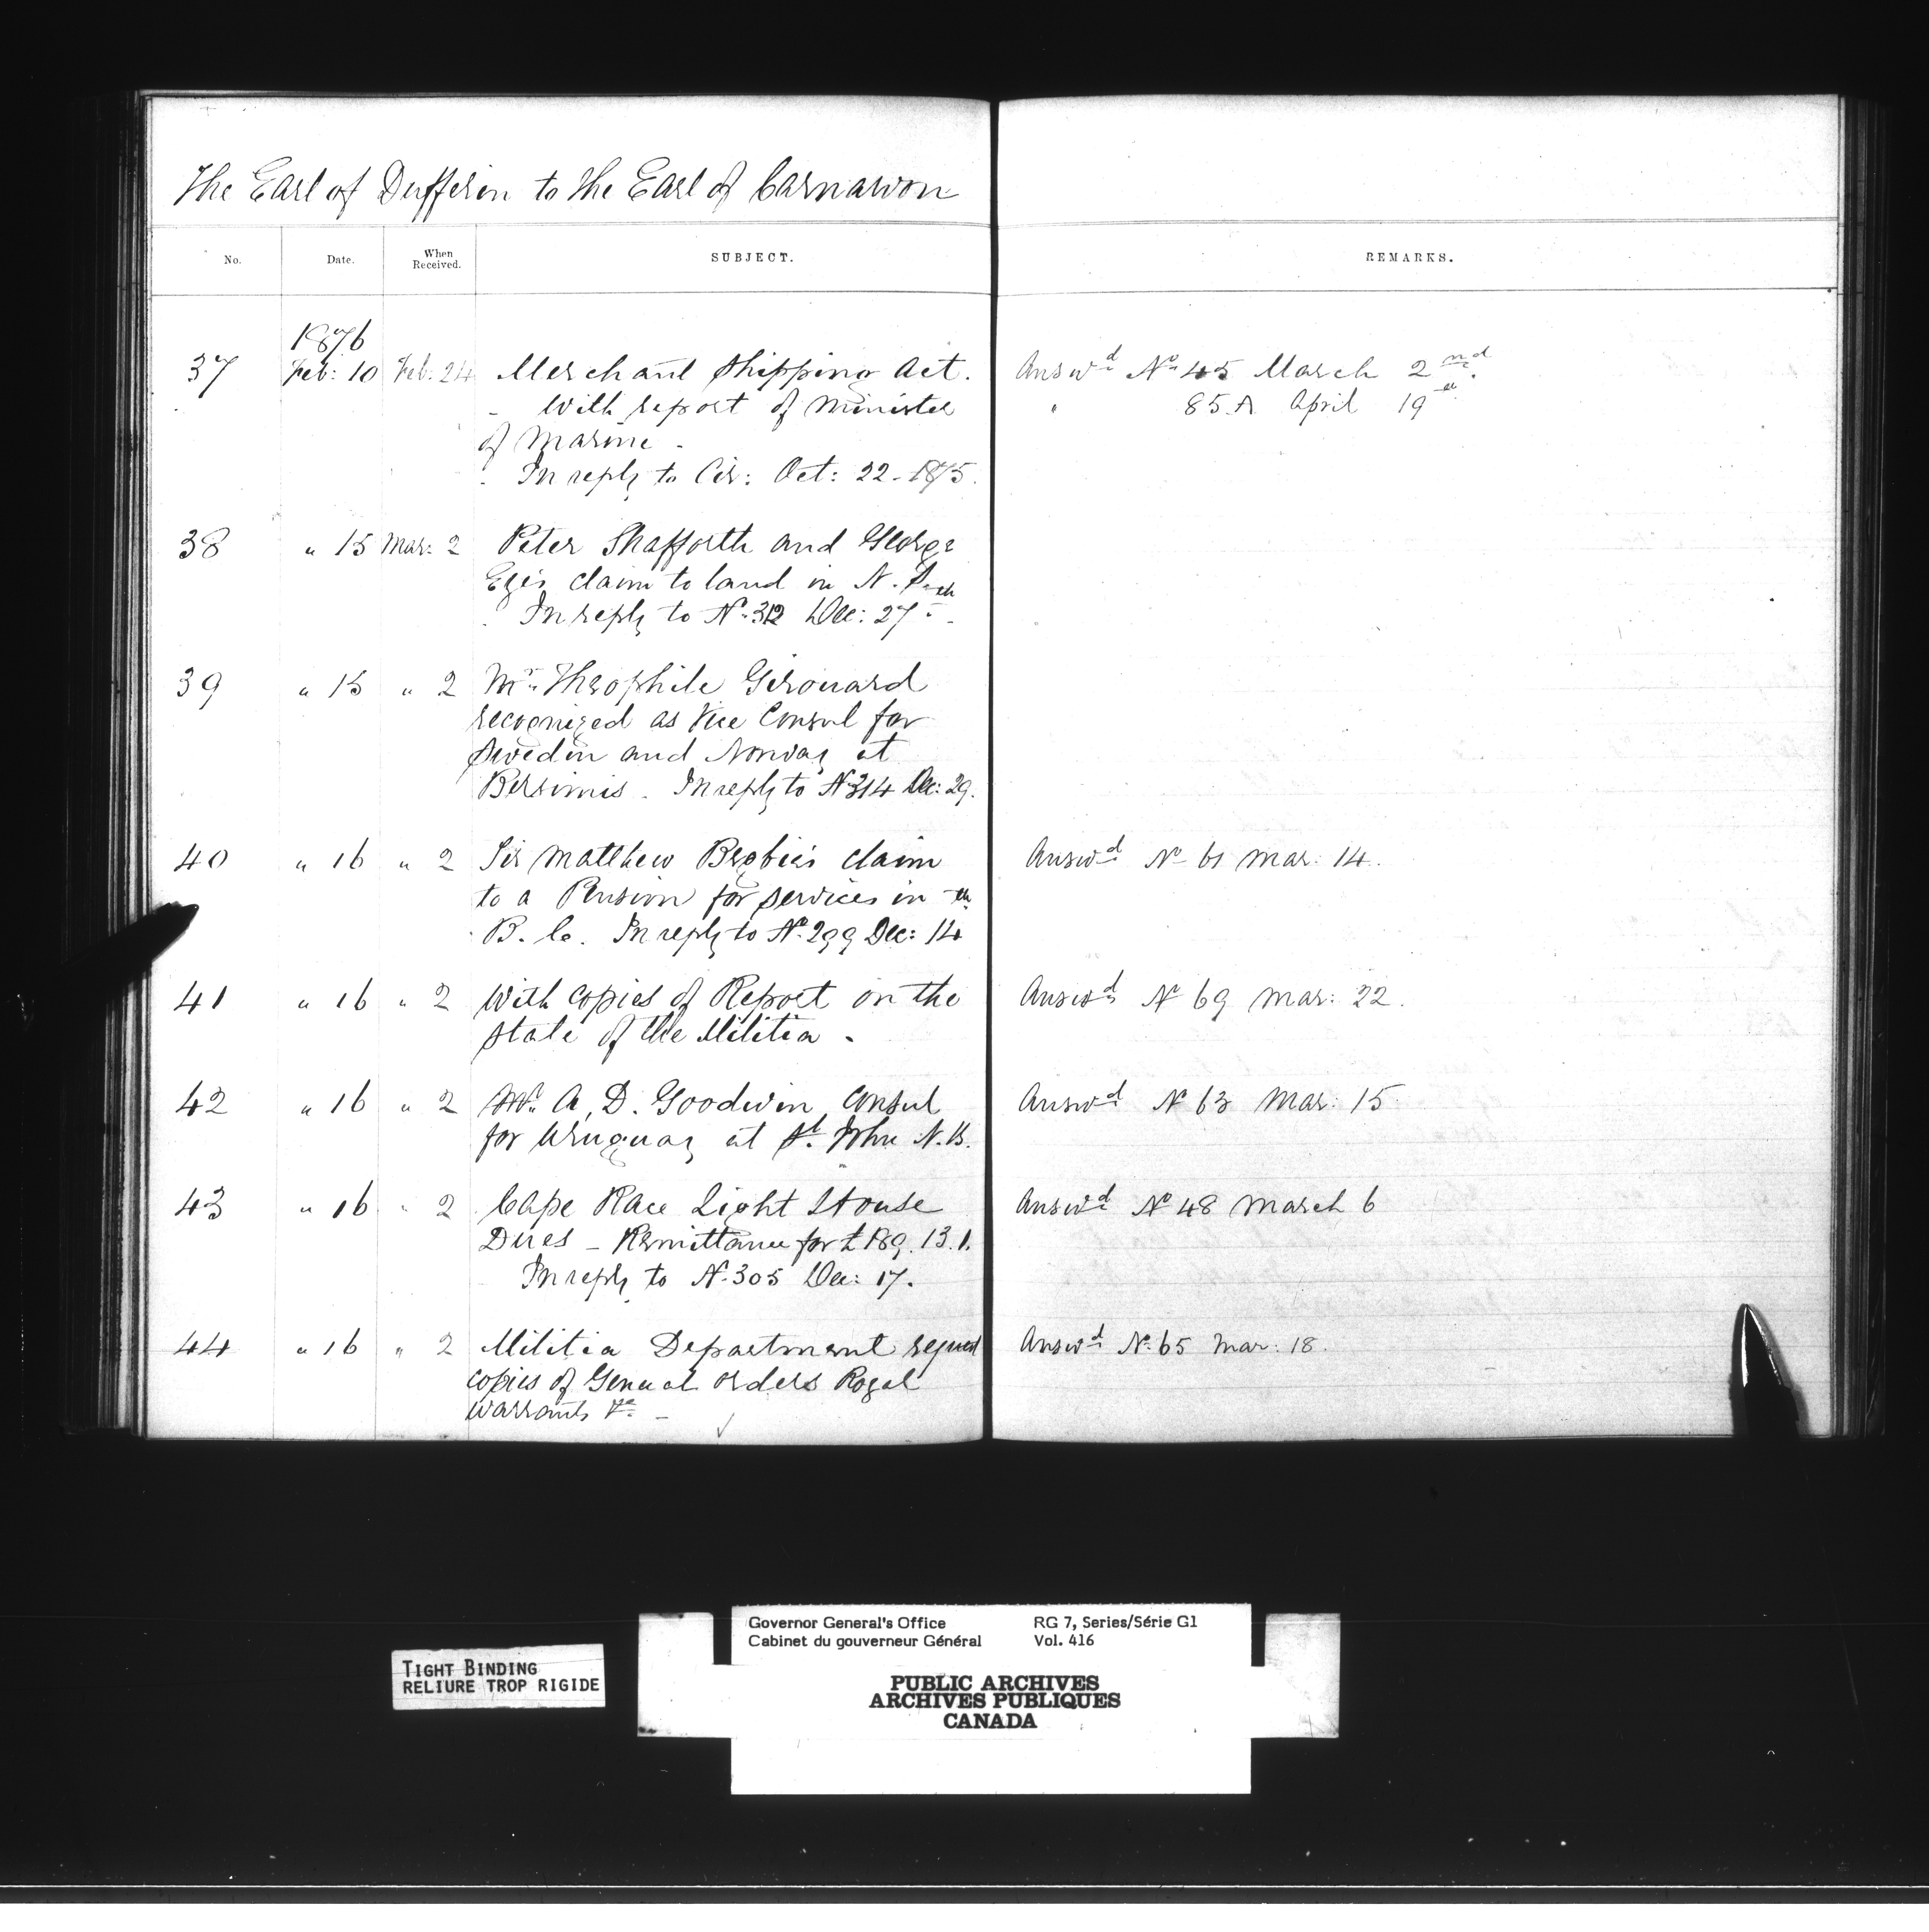 The Earl of Dufferin to the Earl of Carnarvon
No. Date. When Received. SUBJECT. REMARKS.
1876
37 Feb: 10 Feb: 24 Merchant Shipping Act. Answd No 45 March 2nd.
- With report of Minister " 85.A April 19th
of Marine -
In reply to Cir: Oct: 22 - 1875.
38 " 15 Mar: 2 Peter Shafforth and George
claim to land in N.
In reply to No 312 Dec: 27 -
39 " 15 " 2 Mr Theophile Girouard
recognized as Vice Consul for
Sweden and Norway at
Bersimis. In reply to No 314 Dec: 29.
40 " 16 " 2 Sir Matthew Begbie's claim Answd No 61 Mar: 14.
to a Pension for services in
B. Co. In reply to No 299 Dec: 14
41 " 16 " 2 With copies of Report on the Answd No 69 Mar: 22.
State of the Militia -
42 " 16 " 2 Mr A. D. Goodwin, Consul Answd No 63 Mar: 15
for Uruguay at St. John N.B.
43 " 16 " 2 Cape Race Light House Answd No 48 March 6
Dues - Remittance for £189. 13. 1.
In reply to No 305 Dec: 17.
44 " 16 " 2 Militia Department request Answd No 65 Mar: 18.
copies of General orders Royal
Warrants &c -
Governor General's Office RG 7, Series/Série G1
Cabinet du gouverneur Général Vol. 416
TIGHT BINDING
RELIURE TROP RIGIDE
PUBLIC ARCHIVES
ARCHIVES PUBLIQUES
CANADA